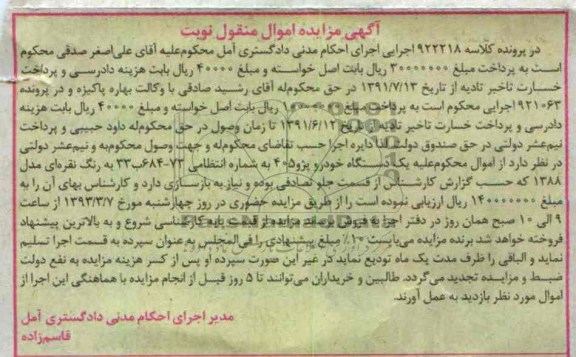 آگهی مزایده اموال منقول نوبت
در پرونده کلاسه ۹۲۲۲۱۸ اجرایی اجرای احکام مدنی دادگستری آمل محکوم‌علیه آقای علی‌اصغر صدقی محکوم
است به پرداخت مبلغ ۳۰۰۰۰۰۰۰ ریال بابت اصل خواسته و مبلغ ۴۰۰۰۰ ریال بابت هزینه دادرسی و پرداخت
خسارت تاخیر تادیه از تاریخ ۱۳۹۱/۷/۱۳ در حق محکوم‌له آقای رشید صادقی با وکالت بهاره پاکیزه و در پرونده
۹۲۱۰۶۳ اجرایی محکوم است به پرداخت مبلغ ریال بابت اصل خواسته و مبلغ ۴۰۰۰۰ ریال بابت هزینه
دادرسی و پرداخت خسارت تاخیر تادیه از تاریخ ۱۳۹۱/۶/۱۲ تا زمان وصول در حق محکوم‌له داود حبیبی و پرداخت
نیم‌عشر دولتی در حق صندوق دولت لذا دایره اجرا حسب تقاضای محکوم‌له و جهت وصول محکوم‌به و نیم‌عشر دولتی
در نظر دارد از اموال محکوم‌علیه یک دستگاه خودرو پژو۴۰۵ به شماره انتظامی ۷۳-۶۸۴ب۳۳ به رنگ نقره‌ای مدل
۱۳۸۸ که حسب گزارش کارشناس از قسمت جلو تصادفی بوده و نیاز به بازسازی دارد و کارشناس بهای آن را به
مبلغ ۱۴۰۰۰۰۰۰۰ ریال ارزیابی نموده است را از طریق مزایده حضوری در روز چهارشنبه مورخ ۱۳۹۳/۳/۷ از ساعت
۹ الی ۱۰ صبح همان روز در دفتر اجرا به فروش برساند مزایده از قیمت پایه کارشناسی شروع و به بالاترین پیشنهاد
فروخته خواهد شد برنده مزایده می‌بایست ۱۰٪ مبلغ پیشنهادی را فی‌المجلس به عنوان سپرده به قسمت اجرا تسلیم
نماید و الباقی را ظرف مدت یک ماه تودیع نماید در غیر این صورت سپرده او پس از کسر هزینه مزایده به نفع دولت
ضبط و مزایده تجدید می‌گردد. طالبین و خریداران می‌توانند تا ۵ روز قبل از انجام مزایده با هماهنگی این اجرا از
اموال مورد نظر بازدید به عمل آورند.
مدیر اجرای احکام مدنی دادگستری آمل
قاسم‌زاده